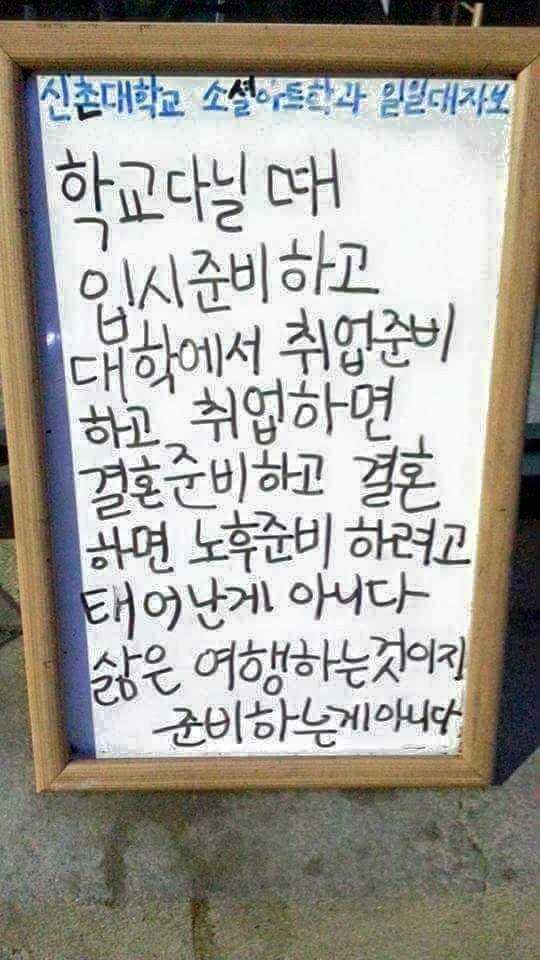 신촌대학교 소셜아트학과 일일대자보
학교다닐 때
입시준비하고
대학에서 취업준비
하고 취업하면
결혼준비하고 결혼
하면 노후준비 하려고
태어난게 아니다
삶은 여행하는것이지
준비하는게아니다